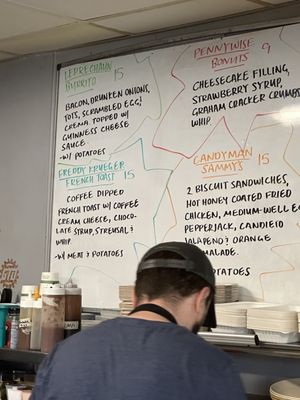 LEPRECHAUN
BURRITO 15
BACON, DRUNKEN ONIONS,
TOTS, SCRAMBLED EGG &
CREMA. TOPPED W/
GUINNESS CHEESE
SAUCE.
-W/ POTATOES
FREDDY KRUEGER
FRENCH TOAST 15
COFFEE DIPPED
FRENCH TOAST W/ COFFEE
CREAM CHEESE, CHOCO-
LATE SYRUP, STREUSAL, &
WHIP.
-W/ MEAT & POTATOES
PENNYWISE
BONUTS 9
CHEESECAKE FILLING,
STRAWBERRY SYRUP,
GRAHAM CRACKER CRUMBS
WHIP.
CANDYMAN
SAMMYS 15
2 BISCUIT SANDWICHES,
HOT HONEY COATED FRIED
CHICKEN, MEDIUM-WELL EGG
PEPPERJACK, CANDIED
JALAPENO & ORANGE
MALADE.
POTATOES